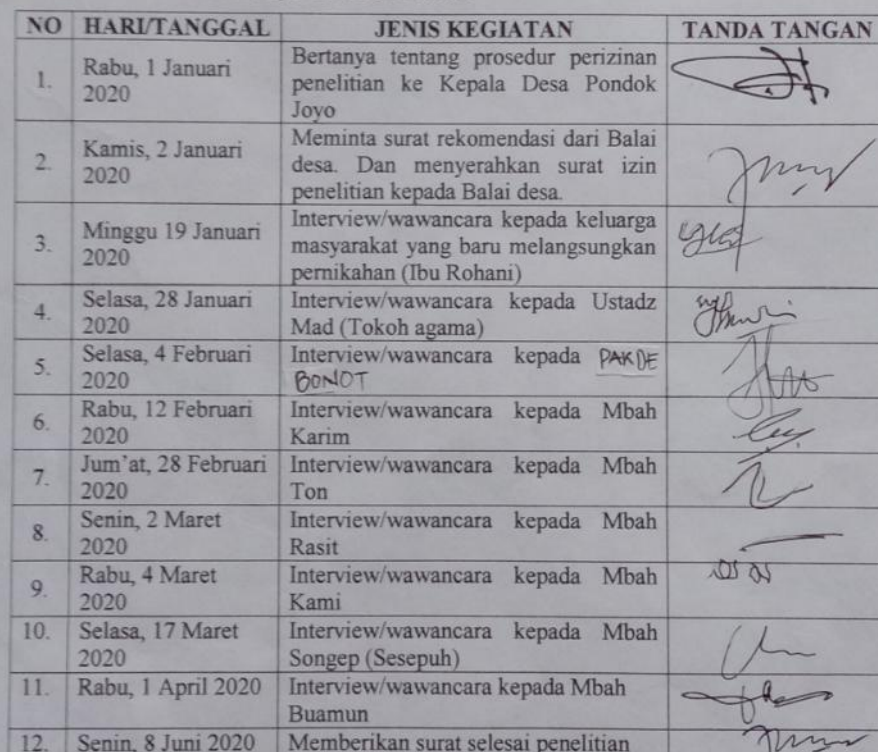 NO HARI/TANGGAL JENIS KEGIATAN TANDA TANGAN
1. Rabu, 1 Januari 2020
Bertanya tentang prosedur perizinan
penelitian ke Kepala Desa Pondok
Joyo
2. Kamis, 2 Januari 2020
Meminta surat rekomendasi dari Balai
desa. Dan menyerahkan surat izin
penelitian kepada Balai desa.
3. Minggu 19 Januari 2020
Interview/wawancara kepada keluarga
masyarakat yang baru melangsungkan
pernikahan (Ibu Rohani)
4. Selasa, 28 Januari 2020
Interview/wawancara kepada Ustadz
Mad (Tokoh agama)
5. Selasa, 4 Februari 2020
Interview/wawancara kepada PAKDE
BONOT
6. Rabu, 12 Februari 2020
Interview/wawancara kepada Mbah
Karim
7. Jum'at, 28 Februari 2020
Interview/wawancara kepada Mbah
Ton
8. Senin, 2 Maret 2020
Interview/wawancara kepada Mbah
Rasit
9. Rabu, 4 Maret 2020
Interview/wawancara kepada Mbah
Kami
10. Selasa, 17 Maret 2020
Interview/wawancara kepada Mbah
Songep (Sesepuh)
11. Rabu, 1 April 2020
Interview/wawancara kepada Mbah
Buamun
12. Senin, 8 Juni 2020
Memberikan surat selesai penelitian